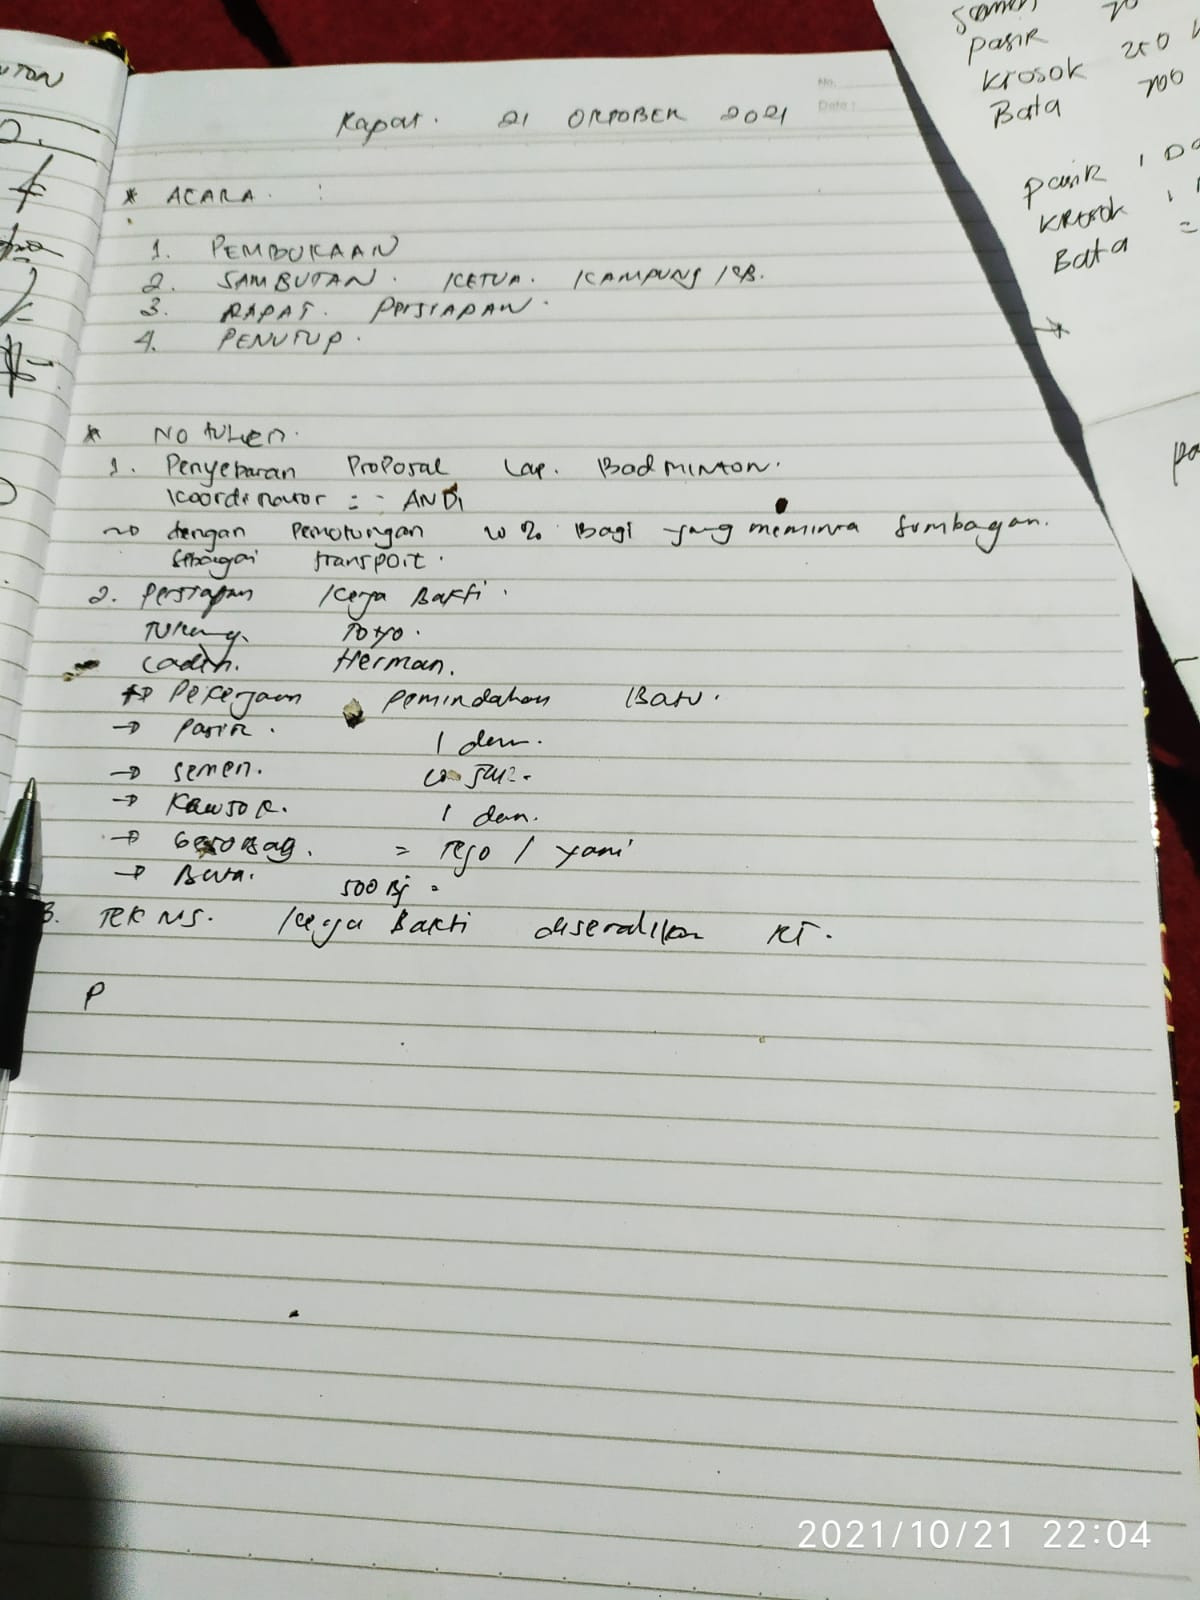 Rapat. 21 OKTOBER 2021
No.
Date :
* ACARA. :
1. PEMBUKAAN
2. SAMBUTAN. KETUA. KAMPUNG KB.
3. RAPAT. PERSIAPAN.
4. PENUTUP.
* NOTULEN.
1. Penyebaran Proposal Lap. BadMINTON.
Koordinator : - ANDI
dengan Pemotongan 10% Bagi yang meminta Sumbagan.
sebagai transport.
2. Persiapan Kerja Bakti.
Tukang. Totyo.
Ladin. Herman.
Pekerjaan pemindahan Batu.
→ Pasir. 1 dam.
→ semen. 10
→ 1 dam.
→ Gerobag. = Tejo / yani
→ Bata. 500 Bj =
3. TEKNIS. Kerja Bakti diserahkan RT.
P
Semen 70
pasir
Krosok 250
Bata 700
pasir 1
Krosok 1
Bata =
2021/10/21 22:04